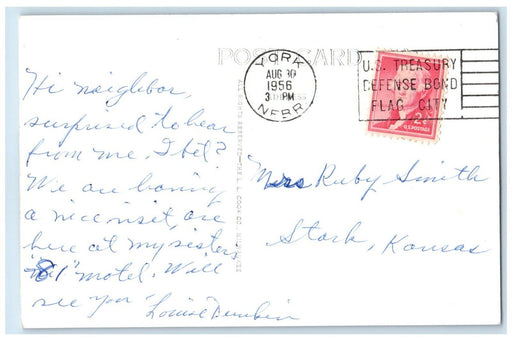 POST CARD
YORK
AUG 30
1956
3 PM
NEBR.
U.S. TREASURY
DEFENSE BOND
FLAG CITY
2¢
U.S. POSTAGE
Hi neighbor,
surprised to hear
from me, I bet?
We are having
a nice visit, are
here at my sister's
"81" motel. Will
see you Louise
Mrs Ruby Smith
Stark, Kansas